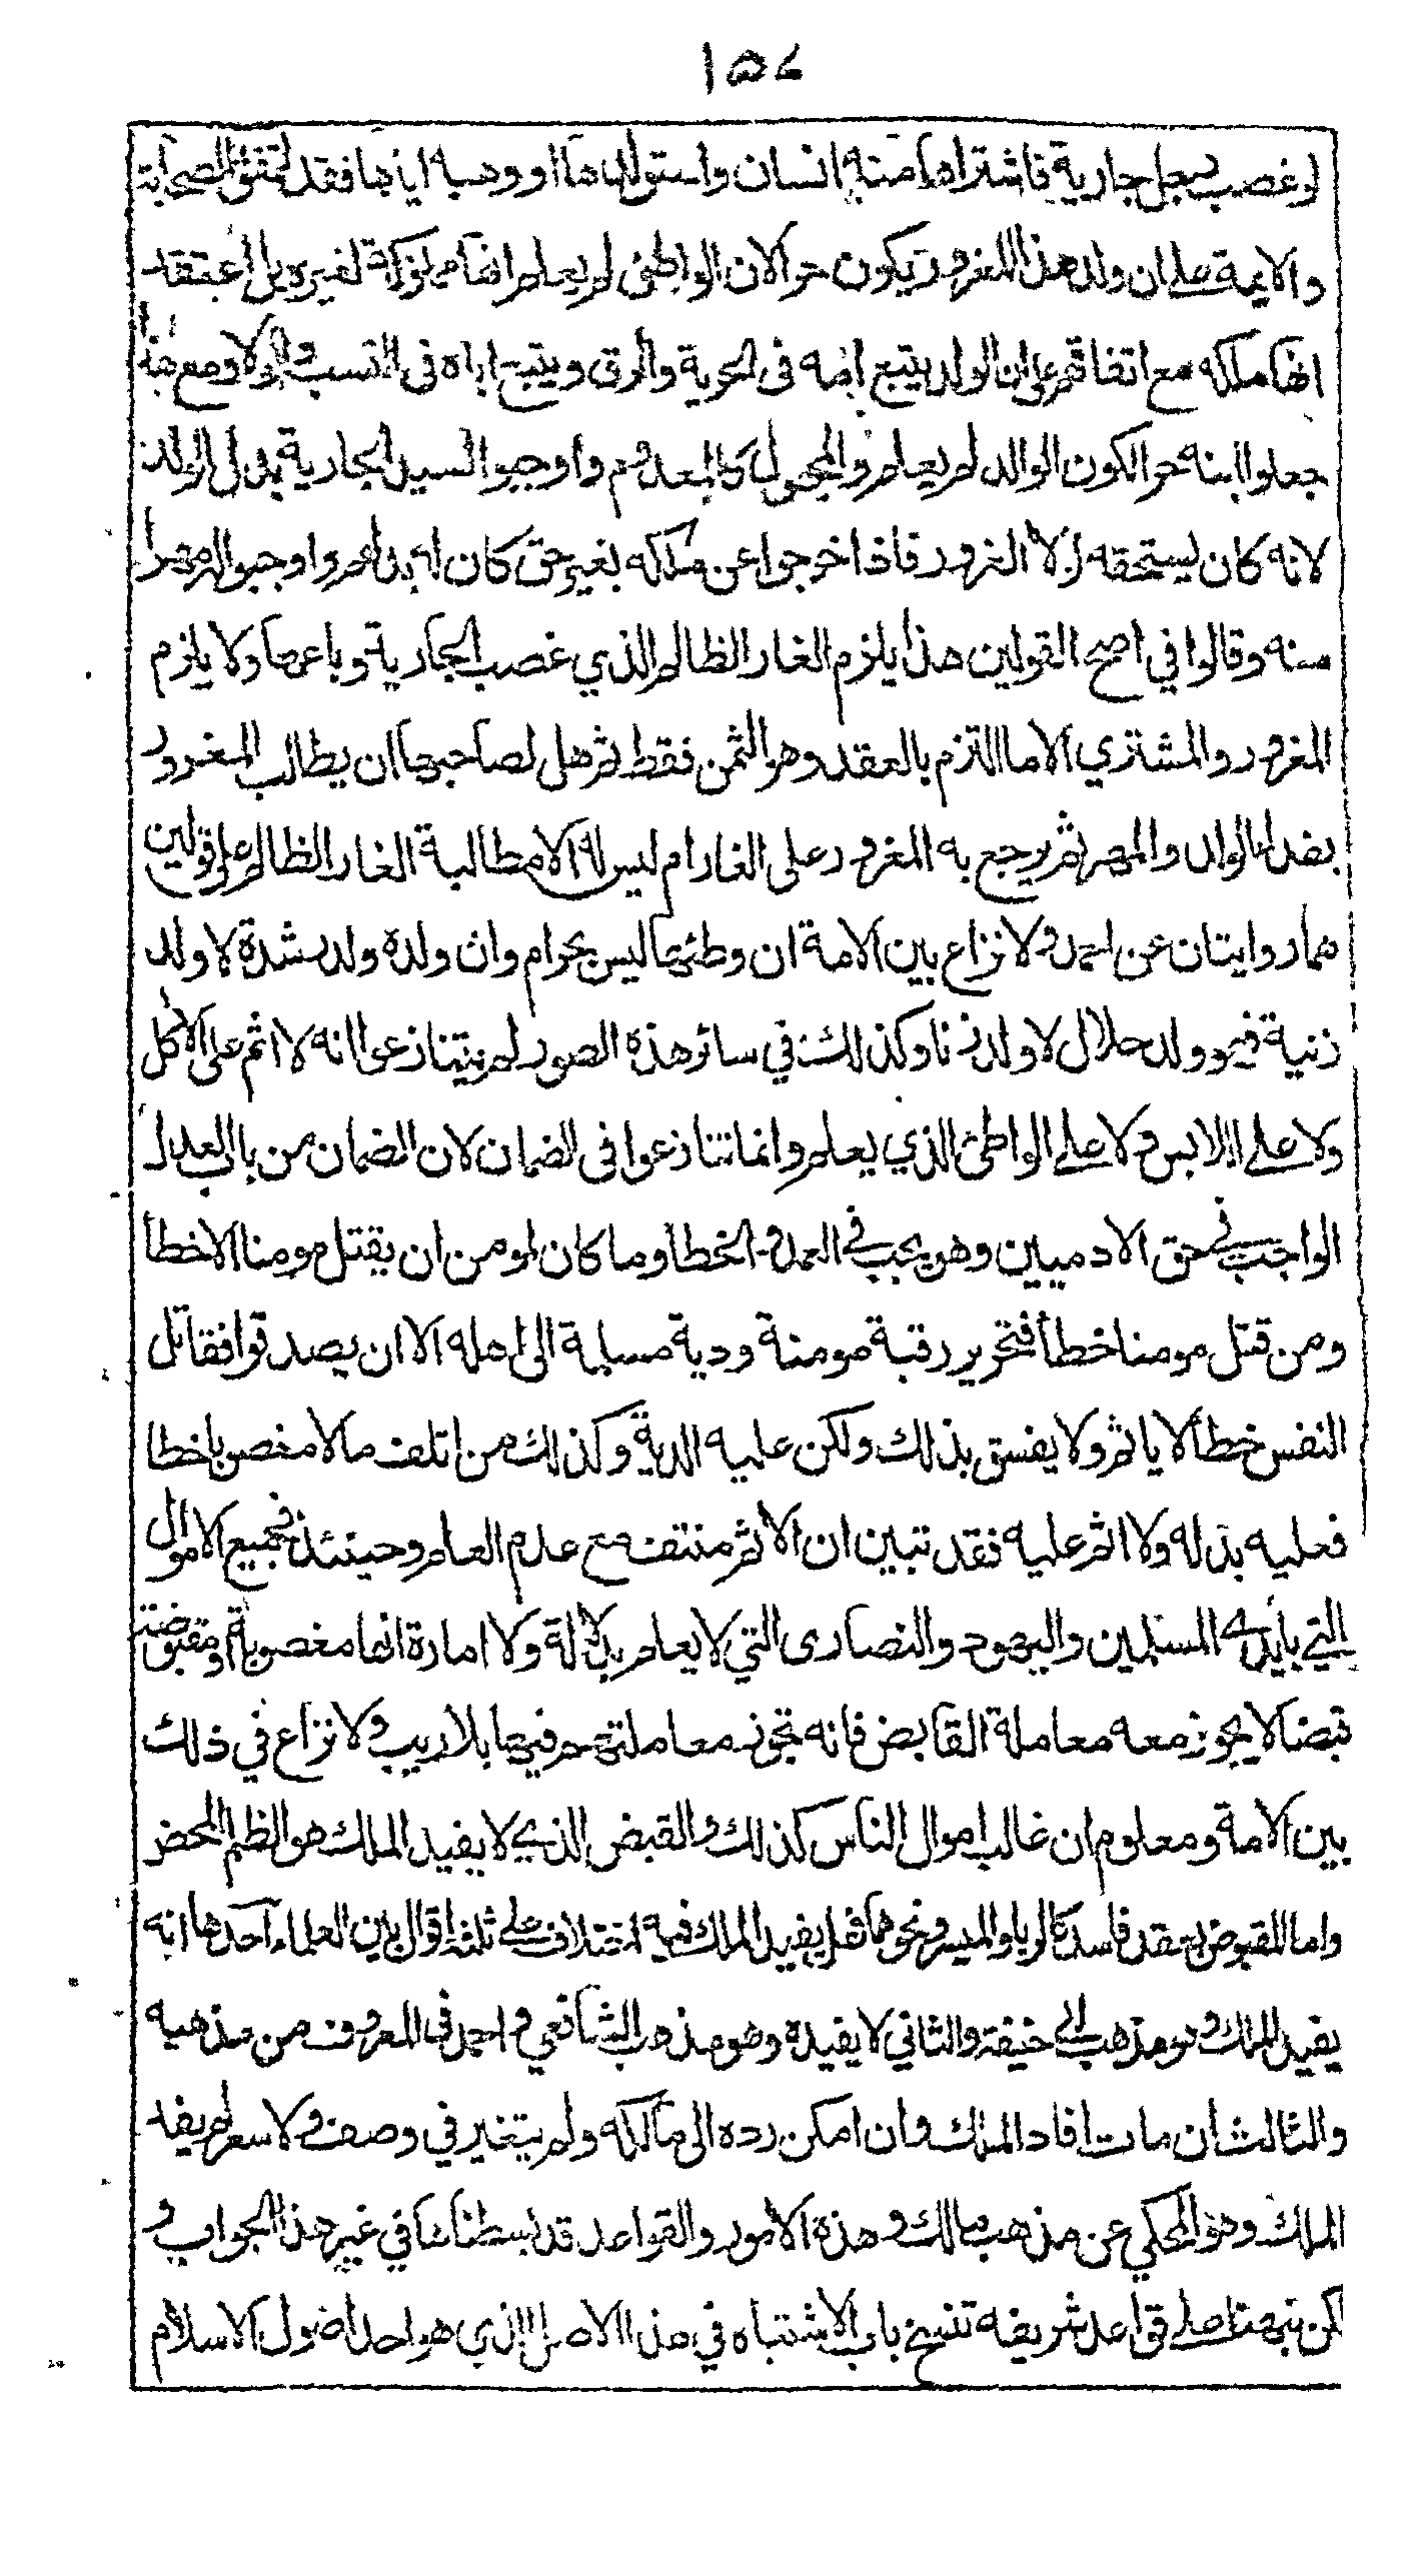 ١٥٤
لو غصب رجل جارية فاشتراها منه انسان واستولدها او وهبه اياها فقد اتفق الصحابة
والايمة على ان ولد هذا المغرور يكون حرا لان الواطئ لم يعلم انها مملوكة لغيره بل اعتقد
انها ملكه مع اتفاقهم على ان الولد يتبع امه في الحرية والرق ويتبع اباه في النسب والولا ومع هذا
جعلوا ابنه حرا لكون الوالد لم يعلم والمجهول كالمعدوم واوجبوا لسيد الجارية بدل الولد
لانه كان يستحقه لولا الغرور فاذا خرجوا عن ملكه بغير حق كان له بدلهم واوجبوا له مهرا
منه وقالوا في اصح القولين هذا يلزم الغار الظالم الذي غصب الجارية وباعها ولا يلزم
المغرور والمشتري الا ما التزم بالعقد وهو الثمن فقط ثم هل لصاحبها ان يطالب المغرور
بفدا الولد والمهر ثم يرجع به المغرور على الغار ام ليس له الا مطالبة الغار الظالم على قولين
هما روايتان عن احمد ولا نزاع بين الامة ان وطئها ليس بحرام وان ولده ولد رشدة لا ولد
زنية فهو ولد حلال لا ولد زنا وكذلك في سائر هذه الصور لم يتنازعوا انه لا اثم على الاكل
ولا على اللابس ولا على الواطئ الذي يعلم وانما تنازعوا في الضمان لان الضمان من باب العدل
الواجب في حق الادميين وهو يجب في العمد والخطأ وما كان لمومن ان يقتل مومنا الا خطأ
ومن قتل مومنا خطأ فتحرير رقبة مومنة ودية مسلمة الى اهله الا ان يصدقوا فقاتل
النفس خطأ لا ياثم ولا يفسق بذلك ولكن عليه الدية وكذلك من اتلف مالا مغصوبا خطا
فعليه بدله ولا اثم عليه فقد تبين ان الاثم منتف مع عدم العلم وحينئذ فجميع الاموال
التي بايدي المسلمين واليهود والنصارى التي لا يعلم بدلالة ولا امارة انها مغصوبة او مقبوضة
قبضا لا يجوز معه معاملة القابض فانه تجوز معاملتهم فيها بلا ريب ولا نزاع في ذلك
بين الامة ومعلوم ان غالب اموال الناس كذلك والقبض الذي لا يفيد الملك هو الظلم المحض
واما المقبوض بعقد فاسد كالربا والميسر ونحوهما فهل يفيد الملك فيه اختلاف على ثلثة اقوال بين العلماء احدها انه
يفيد الملك وهو مذهب ابي حنيفة والثاني لا يفيده وهو مذهب الشافعي واحمد في المعروف من مذهبه
والثالث ان مات افاد الملك وان امكن رده الى مالكه ولم يتغير في وصف ولا سعر لم يفد
الملك وهو المحكي عن مذهب مالك وهذه الامور والقواعد قد بسطناها في غير هذا الجواب و
لكن نبهنا على قواعد شريفه تنسخ باب الاشتباه في هذا الاصل الذي هو احد اصول الاسلام